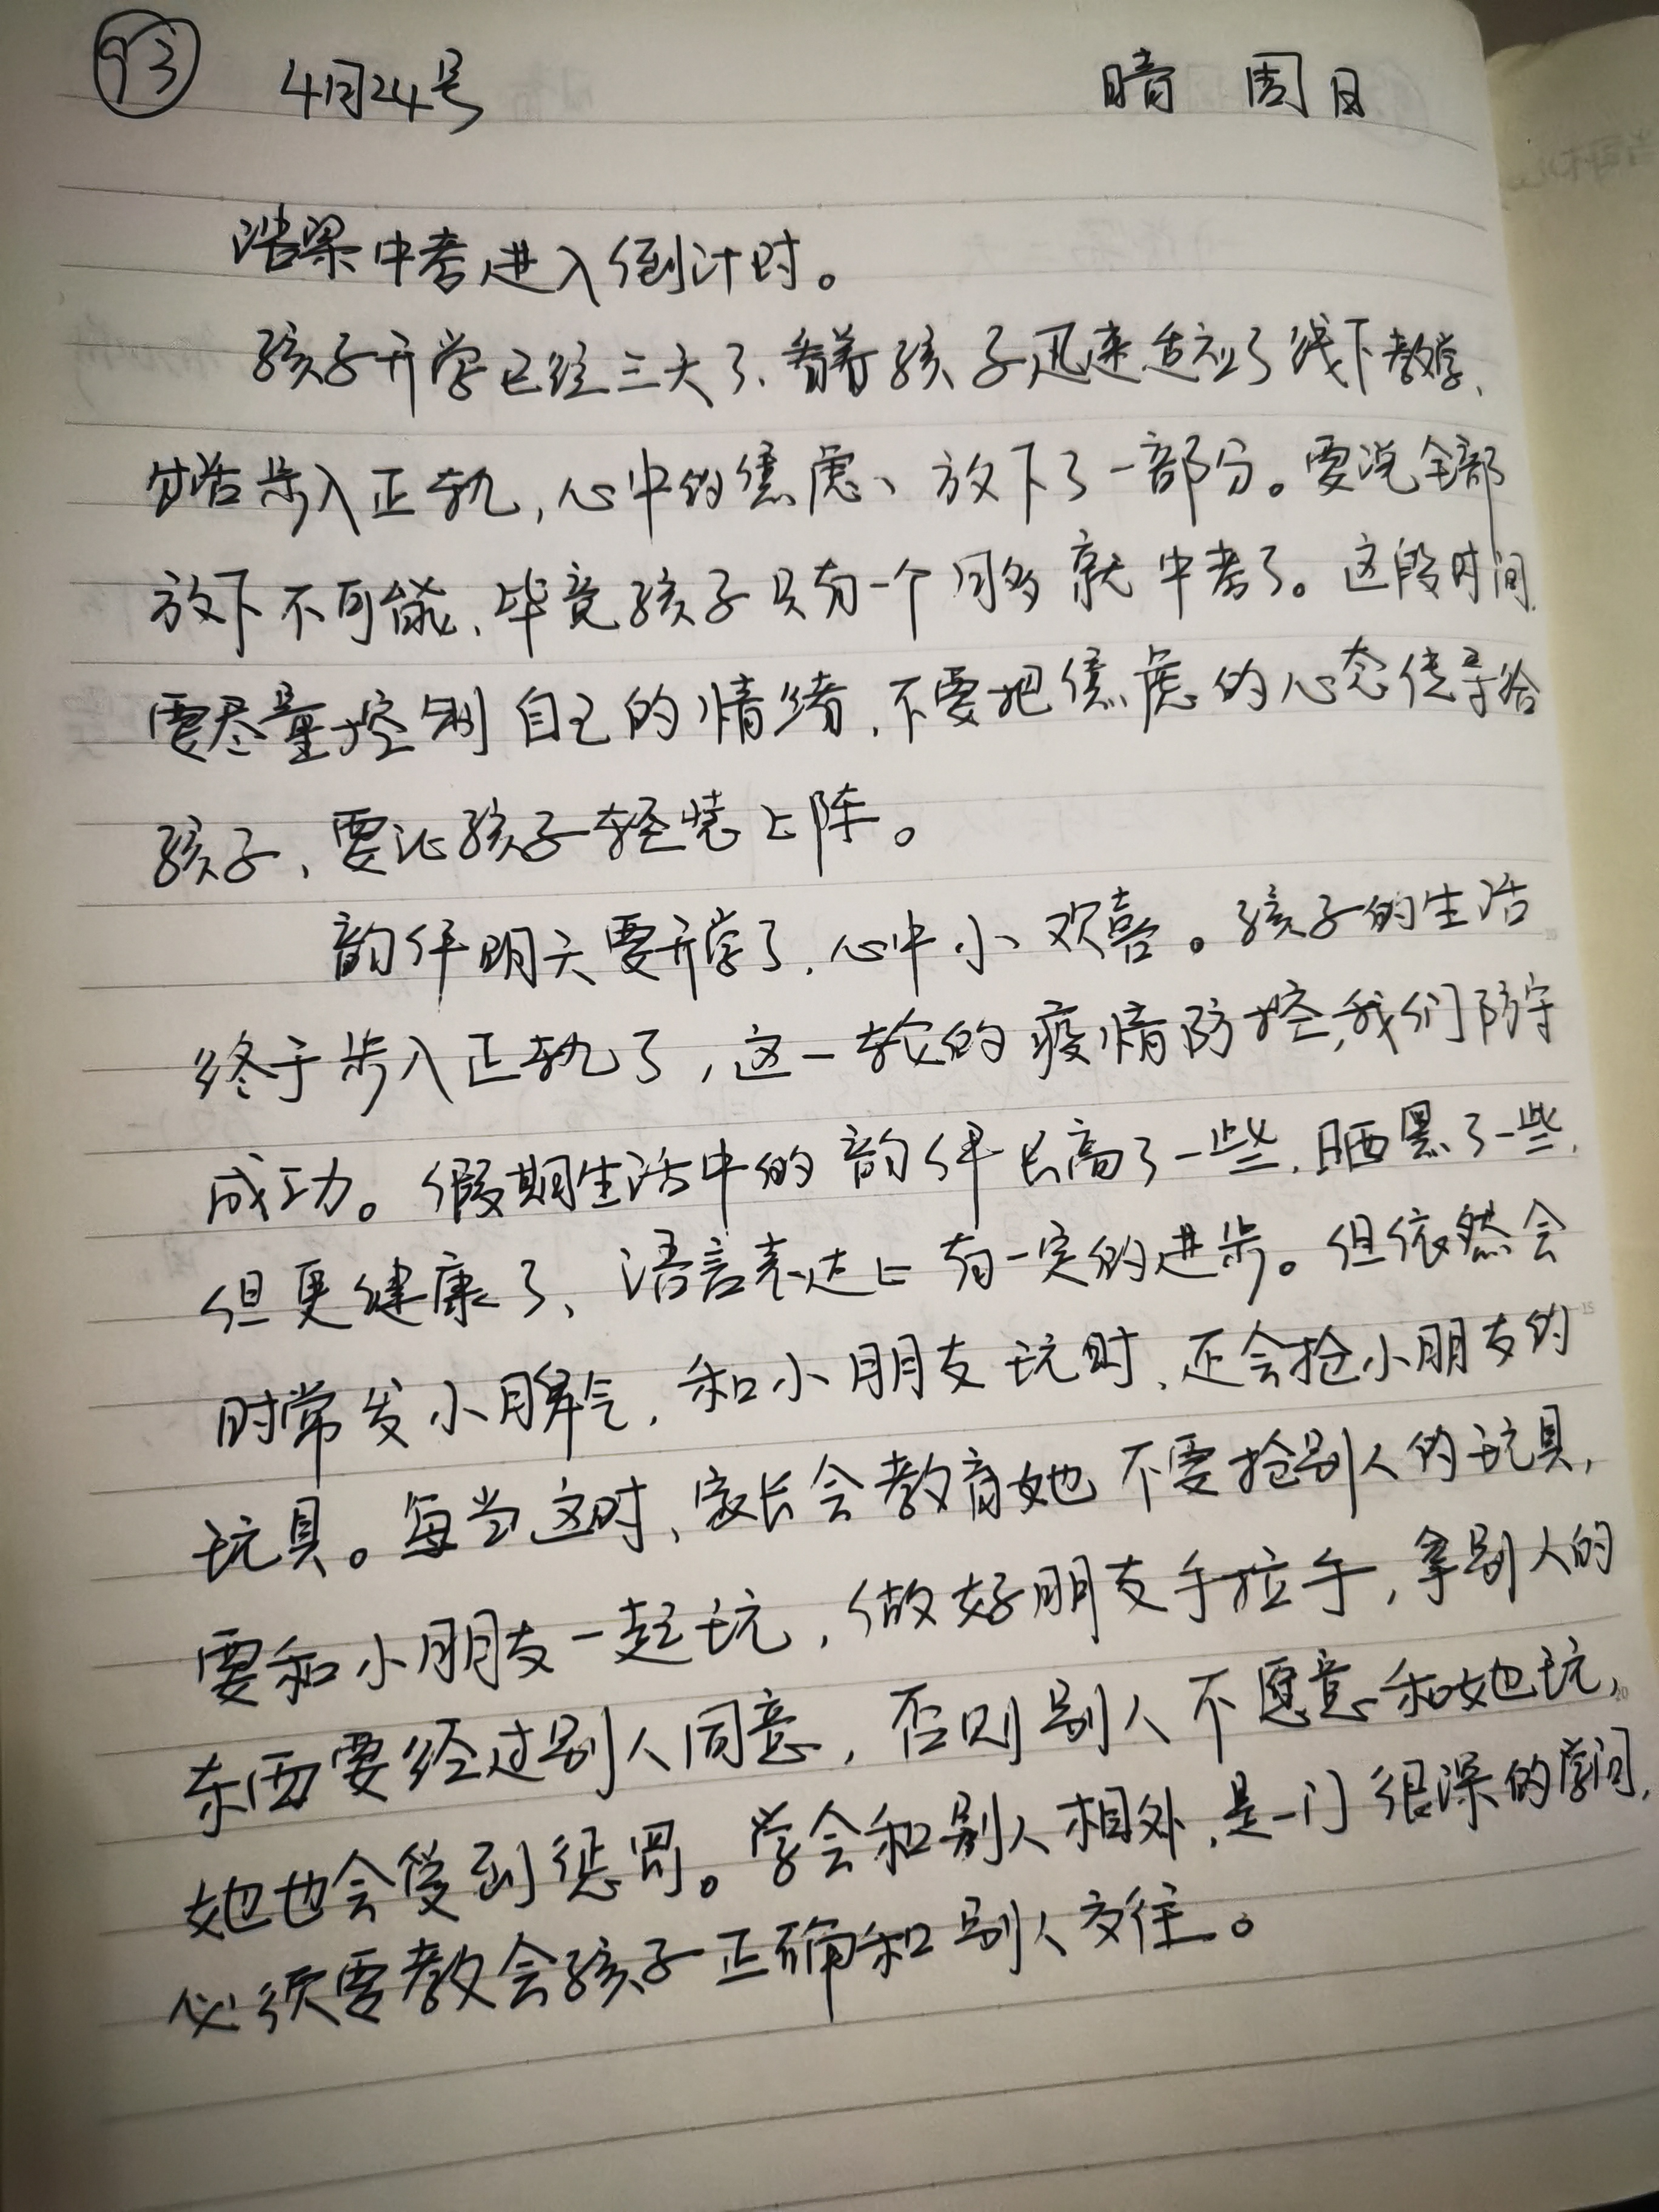 93 4月24号 晴 周日
浩梁中考进入倒计时。
孩子开学已经三天了、看着孩子迅速适应了线下教学、
生活步入正轨,心中的焦虑、放下了一部分。要说全部
放下不可能、毕竟孩子只有一个月多就中考了。这段时间
要尽量控制自己的情绪,不要把焦虑的心态传导给
孩子、要让孩子轻装上阵。
韵伊明天要开学了,心中小欢喜。孩子的生活
终于步入正轨了,这一轮的疫情防控,我们防守
成功。假期生活中的韵伊长高了一些,晒黑了一些,
但更健康了、语言表达上有一定的进步。但依然会
时常发小脾气,和小朋友玩时、还会抢小朋友的
玩具。每当这时、家长会教育她不要抢别人的玩具,
要和小朋友一起玩,做好朋友手拉手,拿别人的
东西要经过别人同意,否则别人不愿意和她玩,
她也会受到惩罚。学会和别人相处,是一门很深的学问,
必须要教会孩子正确和别人交往。